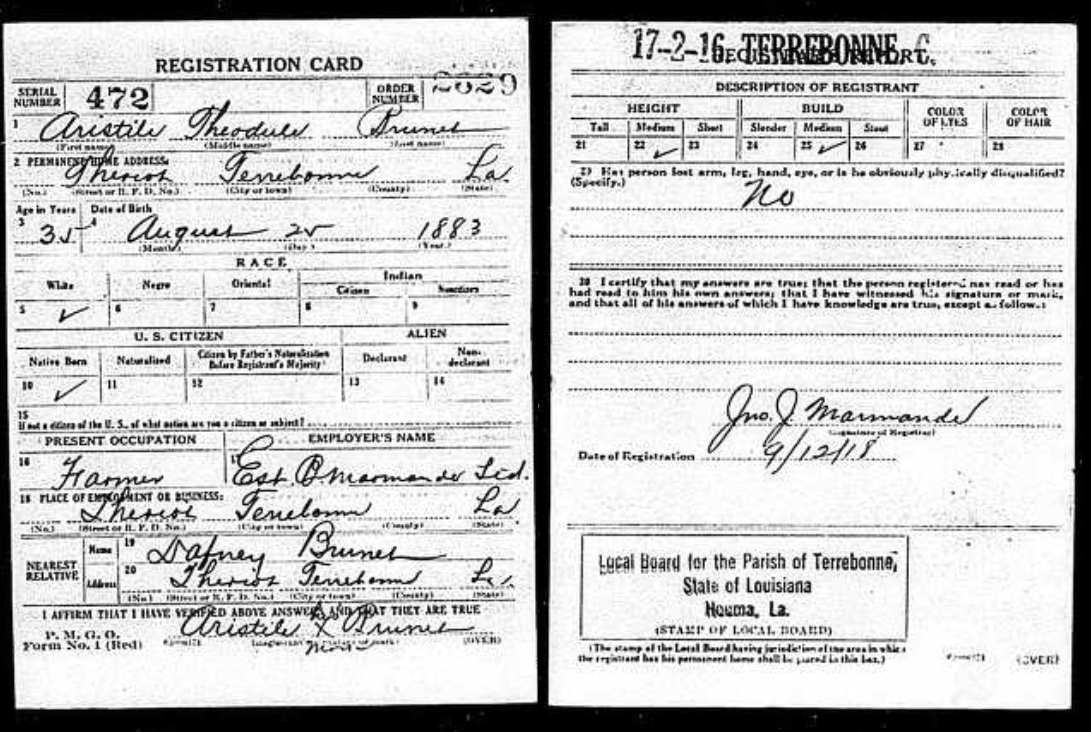 REGISTRATION CARD
SERIAL NUMBER 472 ORDER NUMBER 2629
1 Aristile Theodule Brunet
(First name) (Middle name) (Last name)
2 PERMANENT HOME ADDRESS:
Theriot Terrebonne La
(No.) (Street or R. F. D. No.) (City or town) (County) (State)
Age in Years Date of Birth
3 35 4 August 25 1883
(Month) (Day) (Year)
RACE
White Negro Oriental Indian
Citizen
5 ✓ 6 7 8 9
U. S. CITIZEN ALIEN
Native Born Naturalized Citizen by Father's Naturalization Before Registrant's Majority Declarant Non-declarant
10 ✓ 11 12 13 14
15
If not a citizen of the U. S., of what nation are you a citizen or subject?
PRESENT OCCUPATION EMPLOYER'S NAME
16 Farmer 17 Est. Marmande Ltd.
18 PLACE OF EMPLOYMENT OR BUSINESS:
Theriot Terrebonne La
(No.) (Street or R. F. D. No.) (City or town) (County) (State)
NEAREST RELATIVE Name 19 Dafney Brunet
Address 20 Theriot Terrebonne La.
(No.) (Street or R. F. D. No.) (City or town) (County) (State)
I AFFIRM THAT I HAVE VERIFIED ABOVE ANSWERS AND THAT THEY ARE TRUE
P. M. G. O.
Form No. 1 (Red) Aristile X Brunet
(Registrant's signature or mark) (OVER)
17-2-16 TERREBONNE, C.
REGISTRAR'S REPORT
DESCRIPTION OF REGISTRANT
HEIGHT BUILD COLOR OF EYES COLOR OF HAIR
Tall Medium Short Slender Medium Stout
21 22 ✓ 23 24 25 ✓ 26 27 28
29 Has person lost arm, leg, hand, eye, or is he obviously physically disqualified?
(Specify.)
No
30 I certify that my answers are true; that the person registered has read or has
had read to him his own answers; that I have witnessed his signature or mark,
and that all of his answers of which I have knowledge are true, except as follows:
Jno. J. Marmande
(Signature of Registrar)
Date of Registration 9/12/18
Local Board for the Parish of Terrebonne,
State of Louisiana
Houma, La.
(STAMP OF LOCAL BOARD)
(The stamp of the Local Board having jurisdiction of the area in which
the registrant has his permanent home shall be placed in this box.)
(OVER)